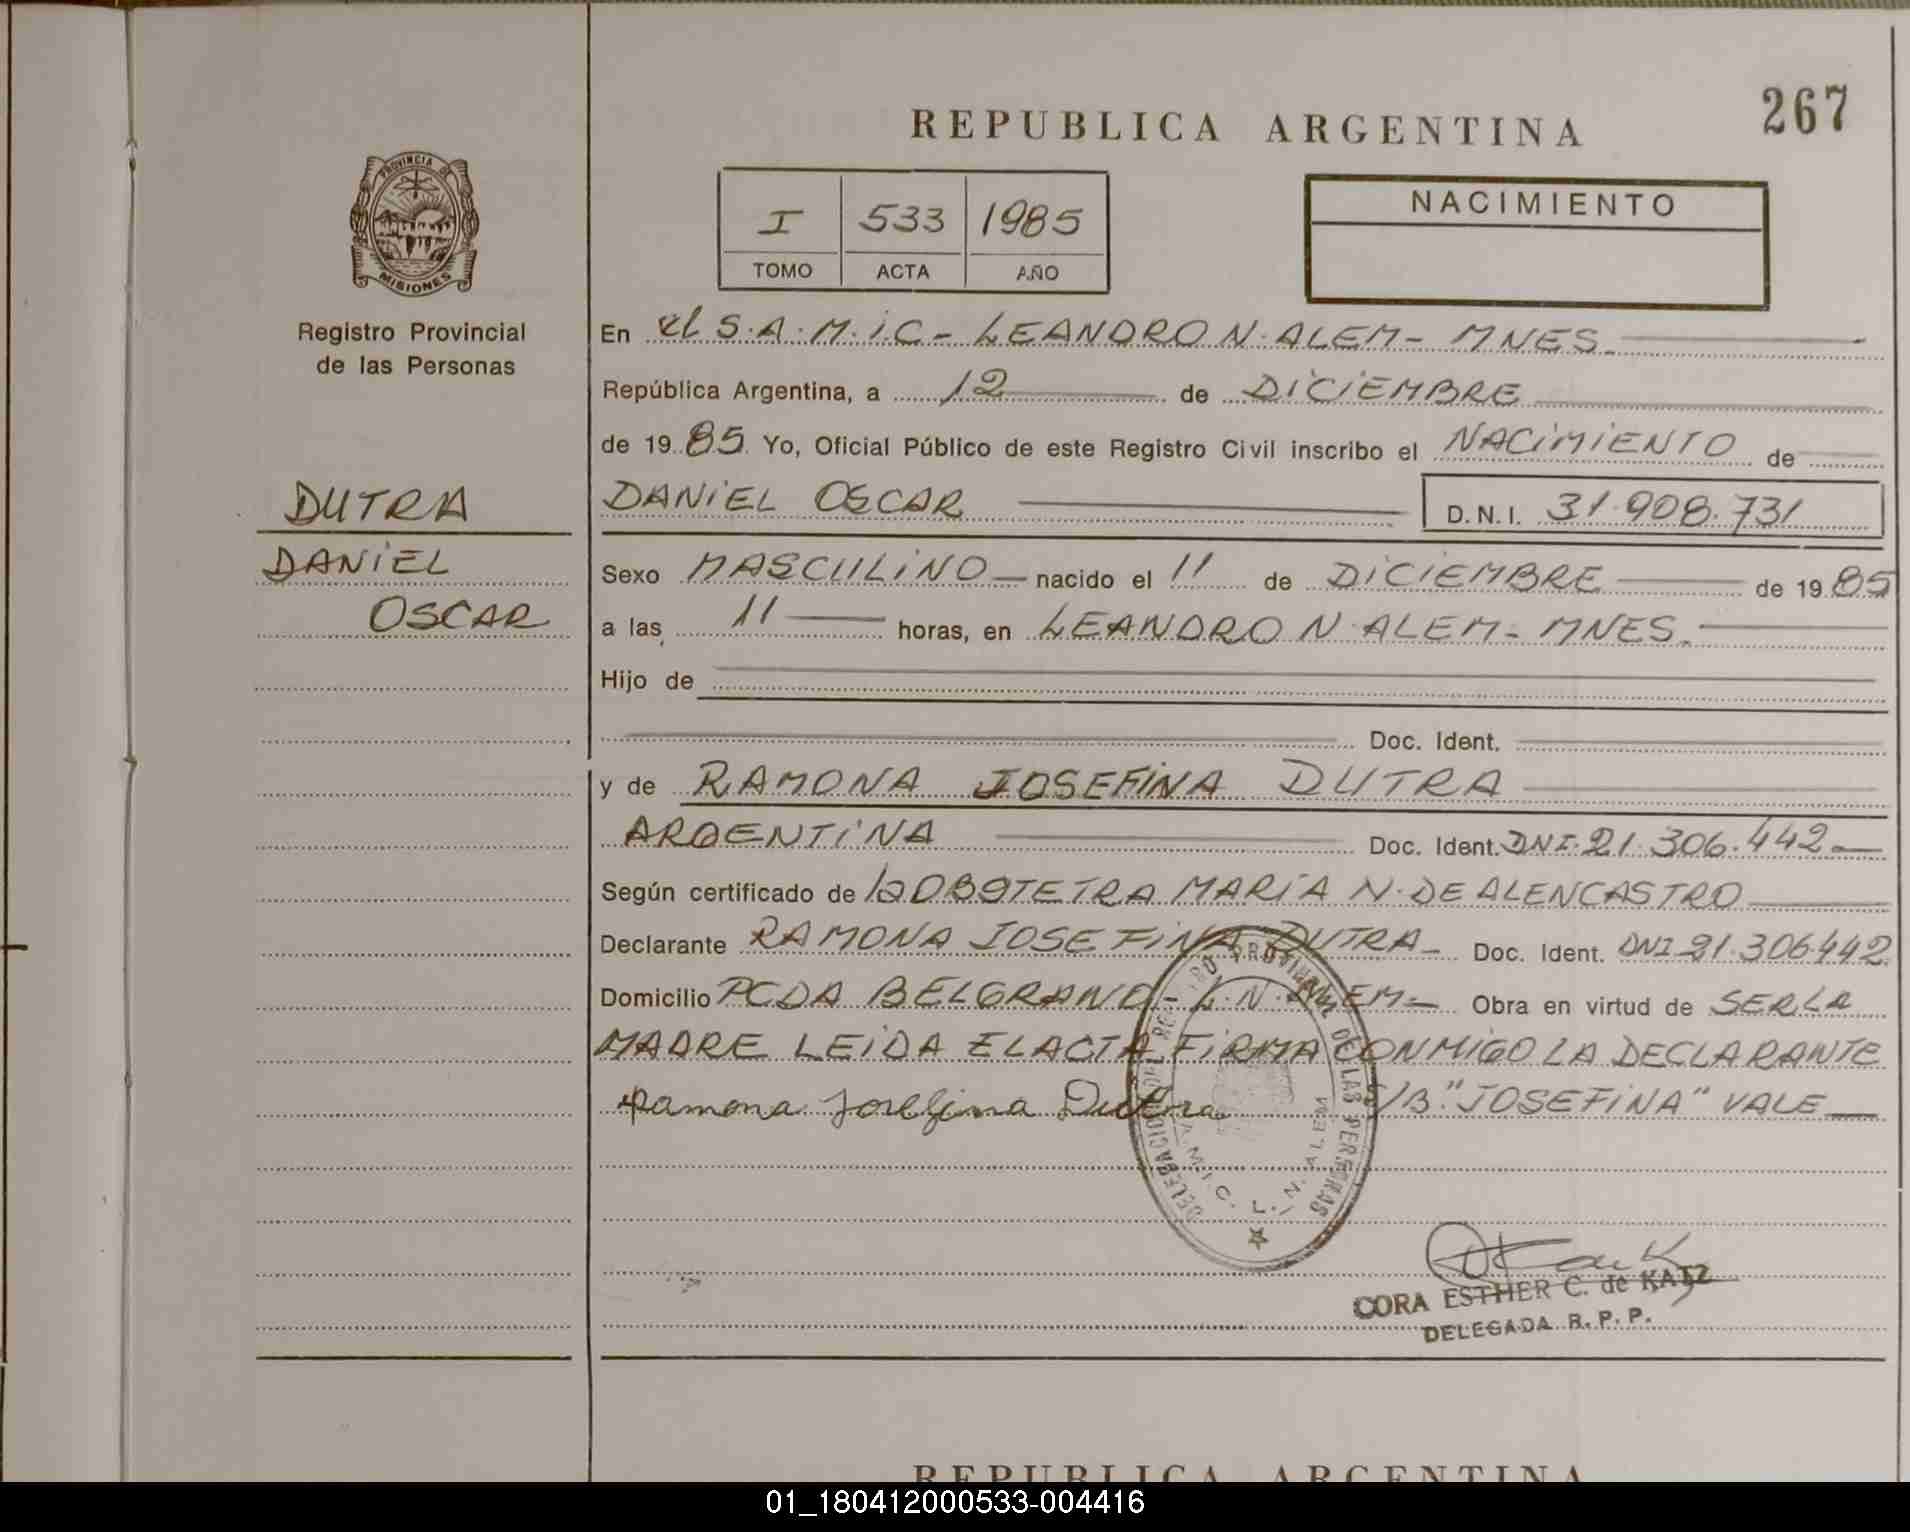 267
REPUBLICA ARGENTINA
PROVINCIA DE
MISIONES
Registro Provincial
de las Personas
I 533 1985
TOMO ACTA AÑO
NACIMIENTO
En el S.A.M.i.C - LEANDRO N. ALEM - MNES.
República Argentina, a 12 de DiCiEMBRE
de 19 85 Yo, Oficial Público de este Registro Civil inscribo el NACiMiENTO de
DUTRA
DANiEL
OSCAR
DANiEL OSCAR D.N.I. 31.908.731
Sexo MASCULiNO nacido el 11 de DiCiEMBRE de 19 85
a las 11 horas, en LEANDRO N. ALEM - MNES.
Hijo de
Doc. Ident.
y de RAMONA JOSEFiNA DUTRA
ARGENTiNA Doc. Ident. DNI. 21.306.442
Según certificado de la OBSTETRA MARiA N. DE ALENCASTRO
Declarante RAMONA JOSEFiNA DUTRA - Doc. Ident. DNI 21.306.442
Domicilio PCDA BELGRANO - L.N. ALEM - Obra en virtud de SER LA
MADRE LEiDA EL ACTA FiRMA CONMiGO LA DECLARANTE
Ramona Josefina Dutra S/B. "JOSEFiNA" VALE
DELEGACION REGISTRO PROVINCIAL DE LAS PERSONAS
S.A.M.I.C. L. N. ALEM
CORA ESTHER C. de KATZ
DELEGADA R. P. P.
REPUBLICA ARGENTINA
01_180412000533-004416